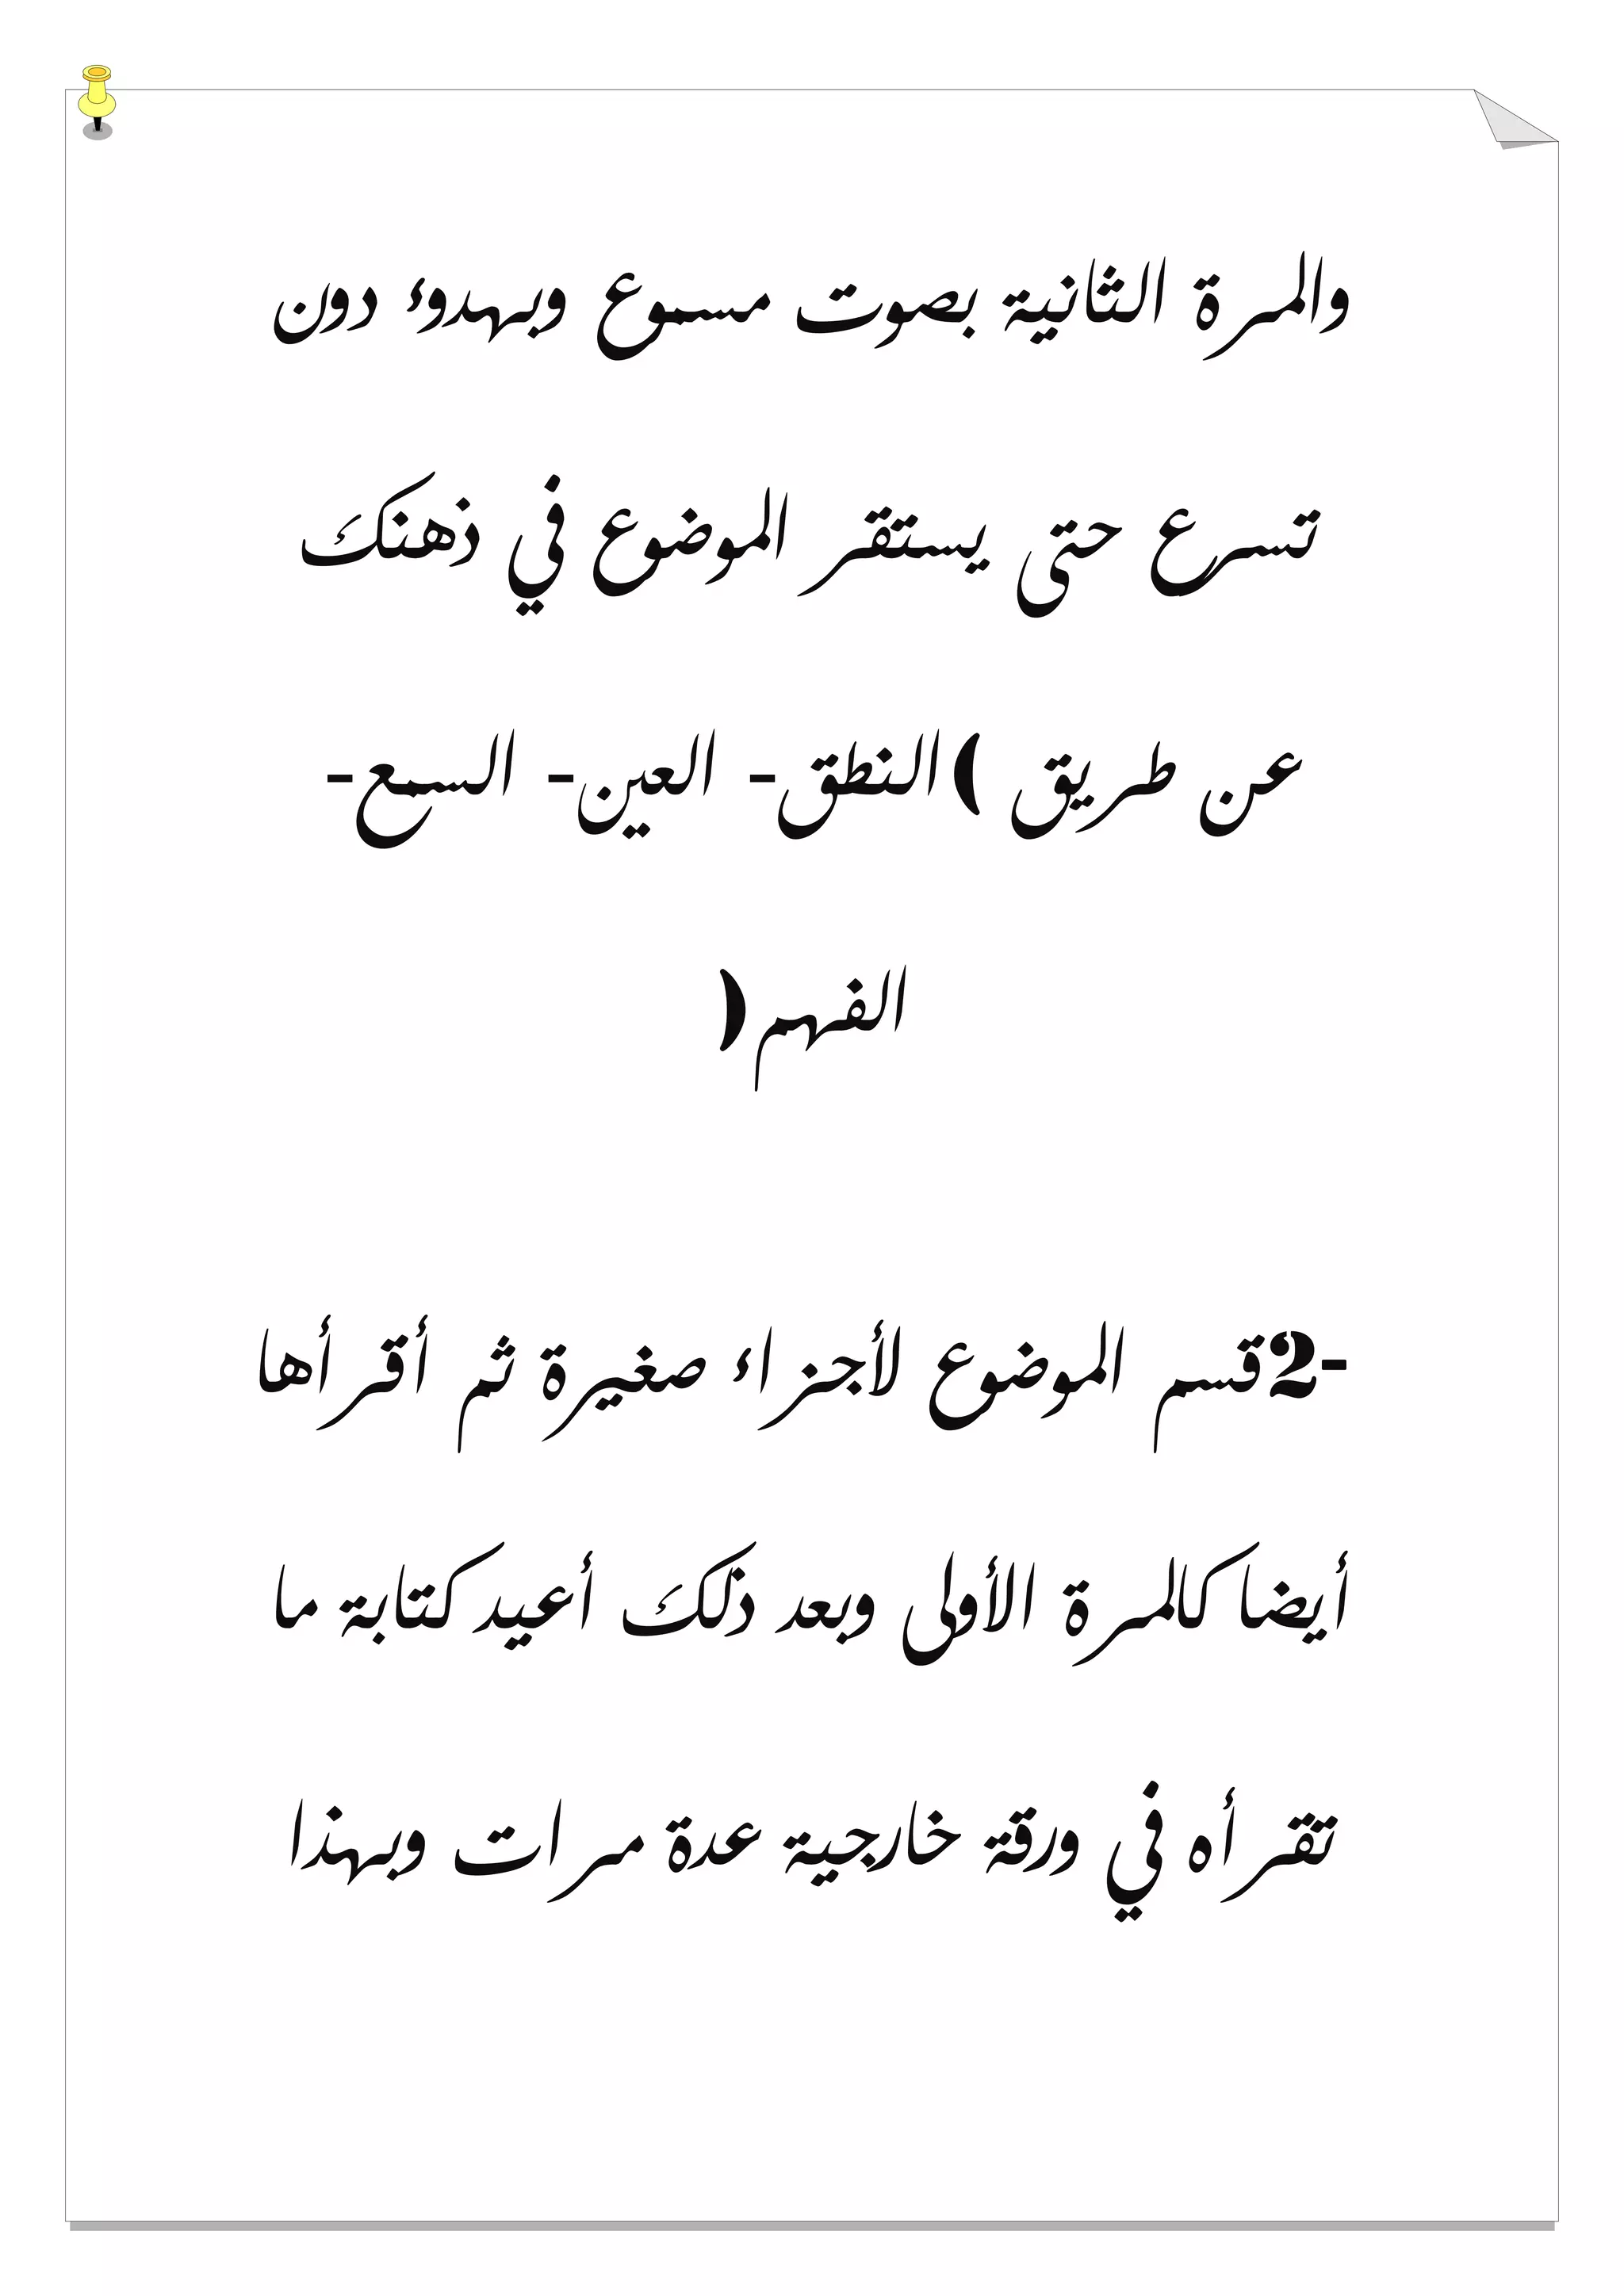 والمرة الثانية بصوت مسموع وبهدوء دون
تسرع حتى يستقر الموضوع في ذهنك
عن طريق )النظق- العين- السمع-
الفهم(
-2قسم الموضوع لأجزاء صغيرة ثم أقرأها
أيضا كالمرة الأولى وبعد ذلك أعيد كتابة ما
تقرأه في ورقة خارجية عدة مرات وبهذا